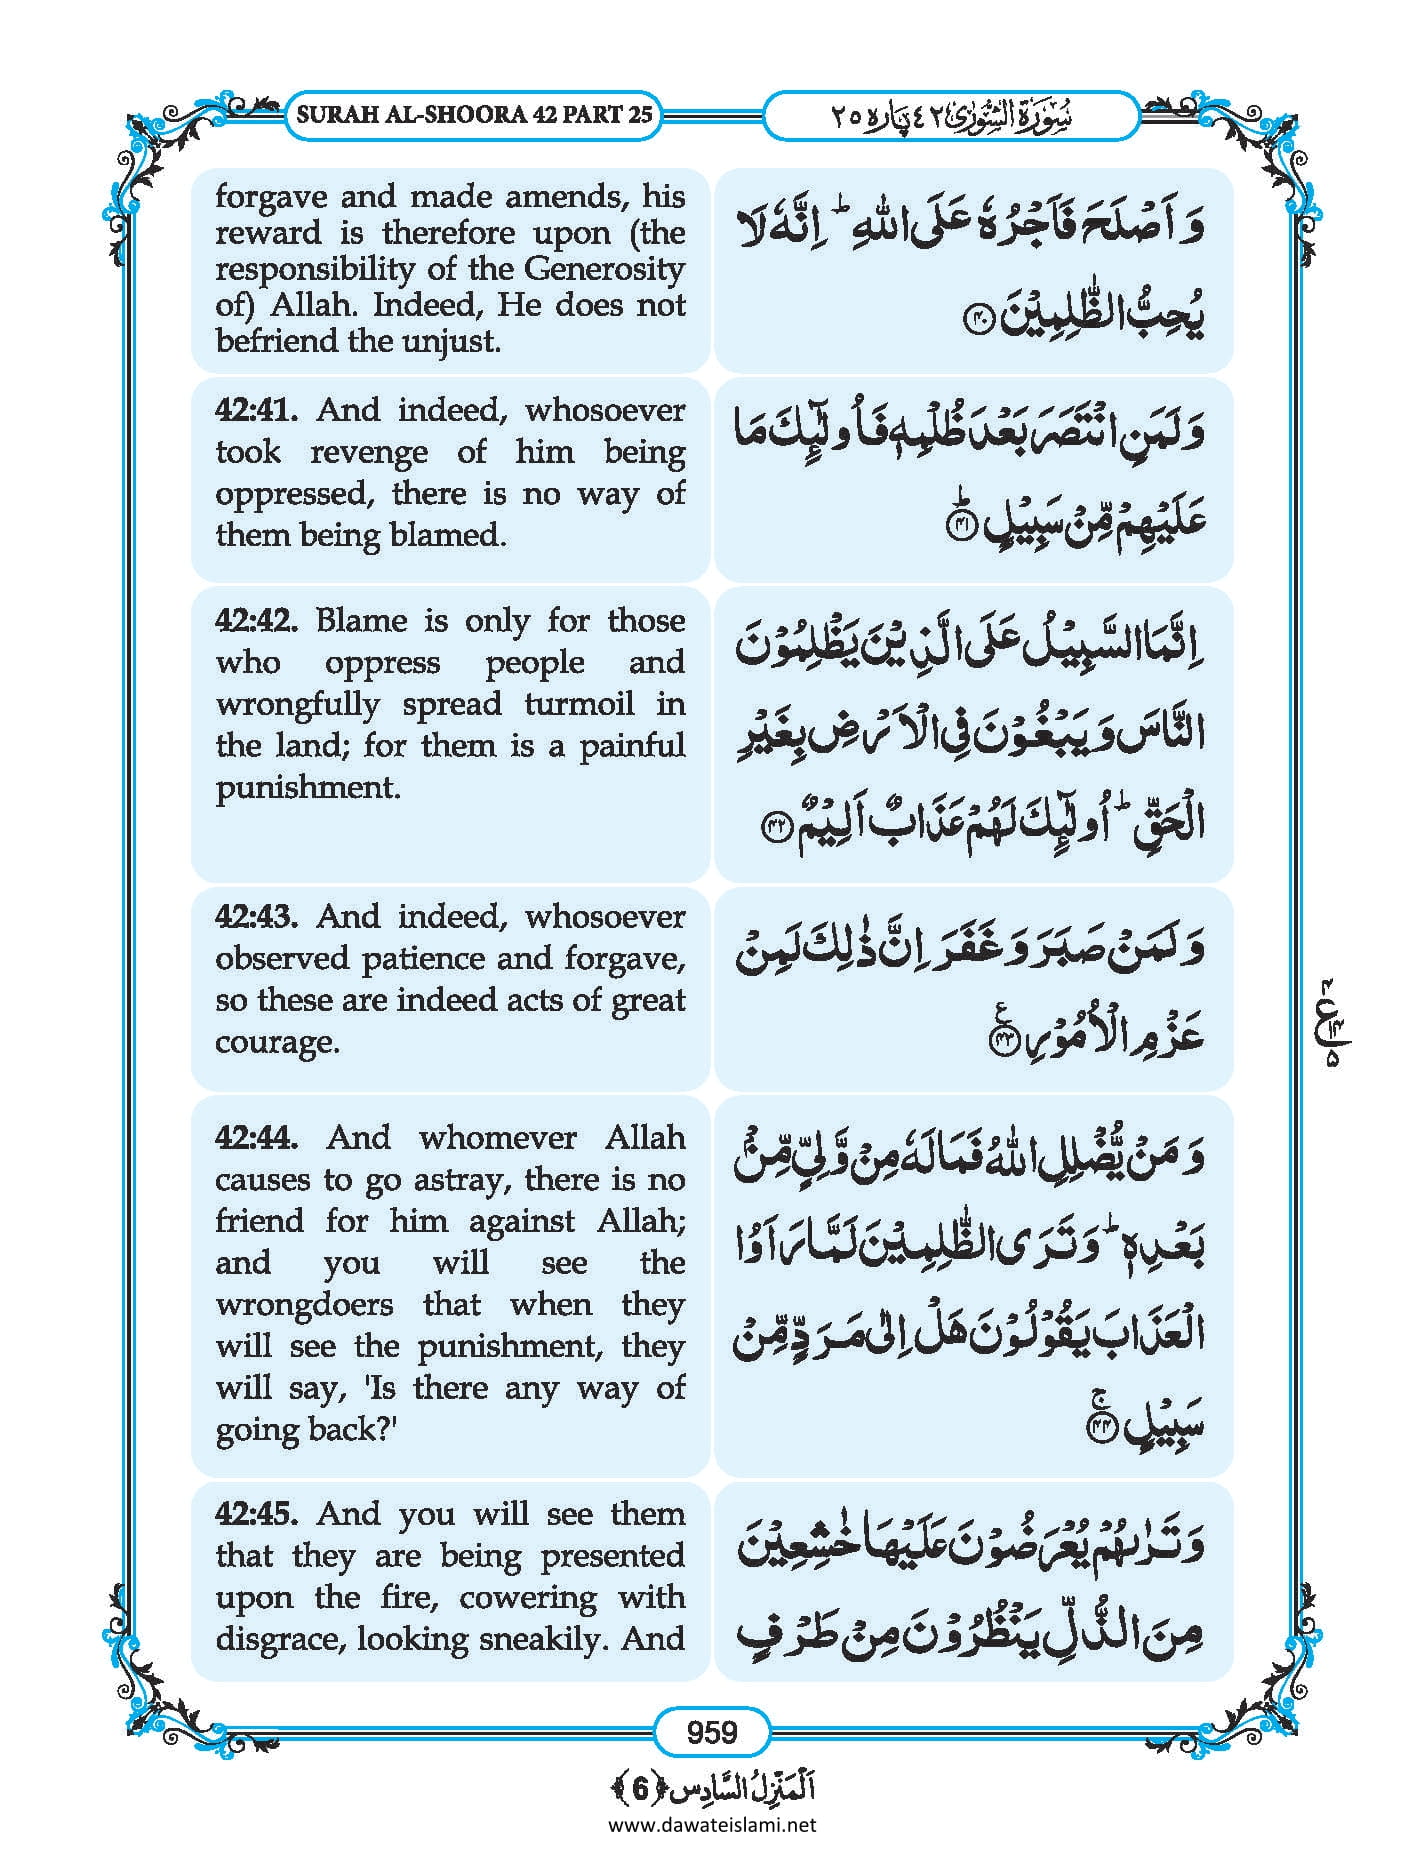 SURAH AL-SHOORA 42 PART 25
سُوۡرَةُ الشُّوۡرٰی ٤٢ پارہ ٢٥
forgave and made amends, his
reward is therefore upon (the
responsibility of the Generosity
of) Allah. Indeed, He does not
befriend the unjust.
وَ اَصۡلَحَ فَاَجۡرُہٗ عَلَی اللّٰہِ ؕ اِنَّہٗ لَا
یُحِبُّ الظّٰلِمِیۡنَ ﴿۴۰﴾
42:41. And indeed, whosoever
took revenge of him being
oppressed, there is no way of
them being blamed.
وَ لَمَنِ انۡتَصَرَ بَعۡدَ ظُلۡمِہٖ فَاُولٰٓئِکَ مَا
عَلَیۡہِمۡ مِّنۡ سَبِیۡلٍ ﴿ؕ۴۱﴾
42:42. Blame is only for those
who oppress people and
wrongfully spread turmoil in
the land; for them is a painful
punishment.
اِنَّمَا السَّبِیۡلُ عَلَی الَّذِیۡنَ یَظۡلِمُوۡنَ
النَّاسَ وَ یَبۡغُوۡنَ فِی الۡاَرۡضِ بِغَیۡرِ
الۡحَقِّ ؕ اُولٰٓئِکَ لَہُمۡ عَذَابٌ اَلِیۡمٌ ﴿۴۲﴾
42:43. And indeed, whosoever
observed patience and forgave,
so these are indeed acts of great
courage.
وَ لَمَنۡ صَبَرَ وَ غَفَرَ اِنَّ ذٰلِکَ لَمِنۡ
عَزۡمِ الۡاُمُوۡرِ ﴿٪۴۳﴾
42:44. And whomever Allah
causes to go astray, there is no
friend for him against Allah;
and you will see the
wrongdoers that when they
will see the punishment, they
will say, 'Is there any way of
going back?'
وَ مَنۡ یُّضۡلِلِ اللّٰہُ فَمَا لَہٗ مِنۡ وَّلِیٍّ مِّنۡۢ
بَعۡدِہٖ ؕ وَ تَرَی الظّٰلِمِیۡنَ لَمَّا رَاَوُا
الۡعَذَابَ یَقُوۡلُوۡنَ ہَلۡ اِلٰی مَرَدٍّ مِّنۡ
سَبِیۡلٍ ﴿ۚ۴۴﴾
42:45. And you will see them
that they are being presented
upon the fire, cowering with
disgrace, looking sneakily. And
وَ تَرٰىہُمۡ یُعۡرَضُوۡنَ عَلَیۡہَا خٰشِعِیۡنَ
مِنَ الذُّلِّ یَنۡظُرُوۡنَ مِنۡ طَرۡفٍ
959
اَلۡمَنۡزِلُ السَّادِس ﴿6﴾
www.dawateislami.net